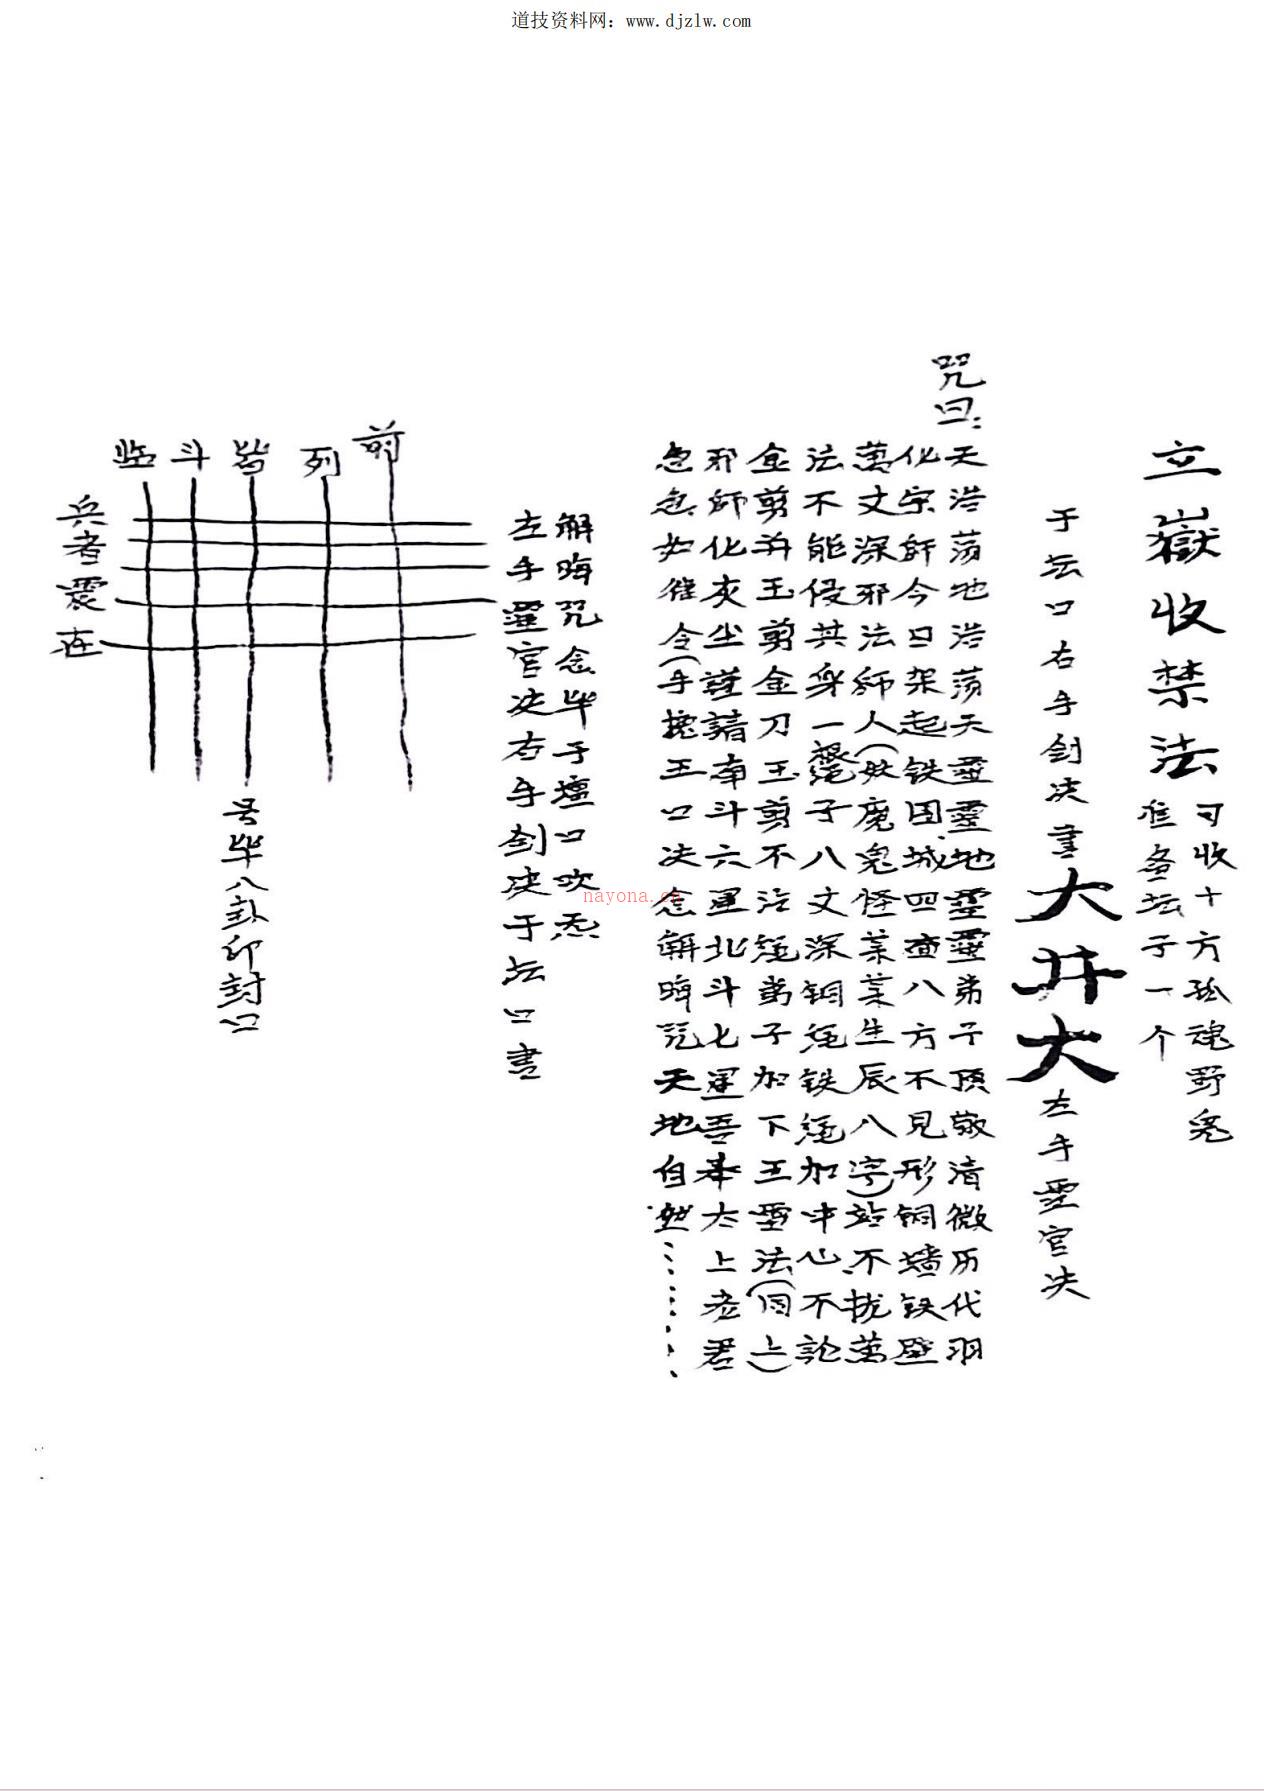 道技资料网：www.djzlw.com
立嶽收禁法
可收十方孤魂野鬼
准备坛子一个
于坛口右手剑决書大井大左手靈官决
咒曰：
天浩荡地浩荡天靈靈地靈靈弟子顶敬清微历代羽
化宗師今日架起铁围城四面八方不見形铜墙铁壁
萬丈深邪法師人（妖魔鬼怪某某生辰八字）站不拢萬
法不能侵其身一盤绳子八丈深铜绳铁绳加中心不論
金剪并玉剪金刀玉剪不沾绳弟子加下五雷法（同上）
邪師化灰尘謹請南斗六星北斗七星吾奉太上老君
急急如律令（手挽王口决念解晦咒天地自然………
解晦咒念毕于壇口吹炁
左手靈官决右手剑决于坛口書
前
列
皆
斗
临
兵
者
震
在
号毕八卦印封口
nayona.cn